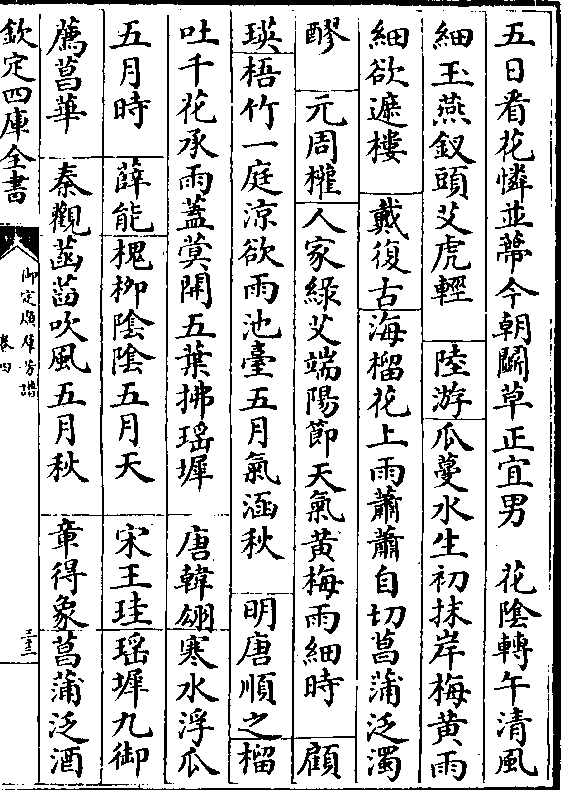 五日看花憐並蔕今朝鬭草正宜男　花陰轉午清風
細玉燕釵頭艾虎輕　陸游瓜蔓水生初抹岸梅黄雨
細欲遮樓　戴復古海榴花上雨蕭蕭自切菖蒲泛濁
醪　元周權人家綠艾端陽節天氣黄梅雨細時　顧
瑛梧竹一庭涼欲雨池臺五月氣涵秋　明唐順之榴
吐千花承雨蓋蓂開五葉拂瑶墀　唐韓翃寒水浮瓜
五月時　薛能槐柳陰陰五月天　宋王珪瑶墀九御
薦菖華　秦觀菡萏吹風五月秋　章得象菖蒲泛酒
欽定四庫全書
御定廣羣芳譜
卷四
三三